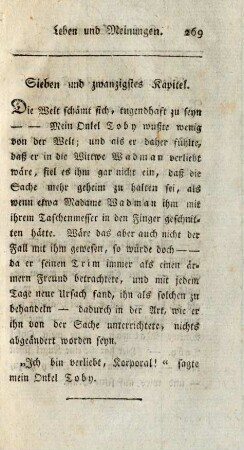 Leben und Meinungen. 269
Sieben und zwanzigstes Kapitel.
Die Welt schämt sich, tugendhaft zu seyn
— — Mein Onkel Toby wußte wenig
von der Welt; und als er daher fühlte,
daß er in die Wittwe Wadman verliebt
wäre, fiel es ihm gar nicht ein, daß die
Sache mehr geheim zu halten sei, als
wenn etwa Madame Wadman ihm mit
ihrem Taschenmesser in den Finger geschnit-
ten hätte. Wäre das aber auch nicht der
Fall mit ihm gewesen, so würde doch —
da er seinen Trim immer als einen är-
mern Freund betrachtete, und mit jedem
Tage neue Ursach fand, ihn als solchen zu
behandeln — dadurch in der Art, wie er
ihn von der Sache unterrichtete, nichts
abgeändert worden seyn.
„Ich bin verliebt, Korporal!“ sagte
mein Onkel Toby.